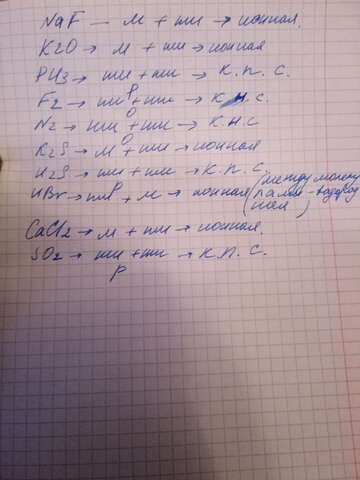 NaF — м + нм → ионная.
K2O → м + нм → ионная
PH3 → нм + нм → к.п.с.
р
F2 → нм + нм → к н.с.
о
N2 → нм + нм → к н.с
о
K2S → м + нм → ионная
H2S → нм + нм → к.п.с.
р
HBr → нм + м → ионная (между молеку
лами - водород
ная)
CaCl2 → м + нм → ионная
SO2 → нм + нм → к.п.с.
р